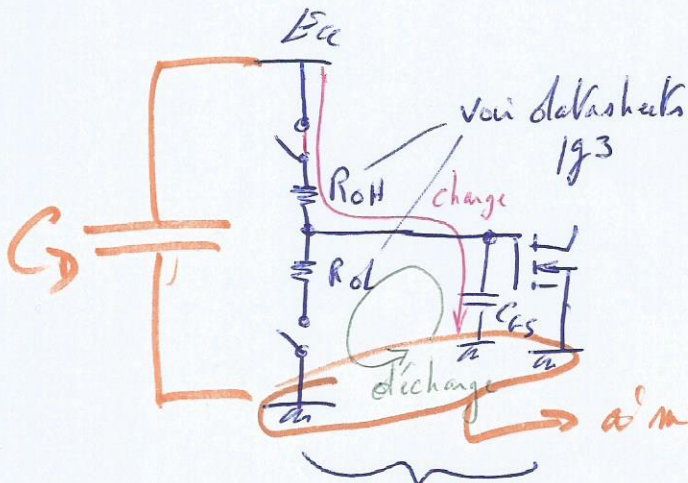 voir datasheets
pg3
ROH
charge
CD
ROL
CGS
décharge